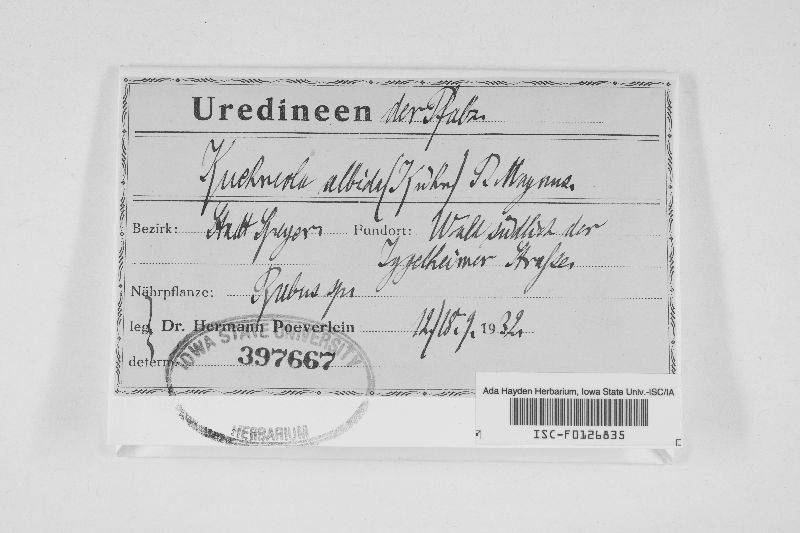 Uredineen der Pfalz.
Kuehneola albida (Kühn) P. Magnus.
Bezirk: Stadt Speyer. Fundort: Wald südlich der
Iggelheimer Straße.
Nährpflanze: Rubus sp.
leg. Dr. Hermann Poeverlein 1932.
determ.
IOWA STATE UNIVERSITY
397667
HERBARIUM
Ada Hayden Herbarium, Iowa State Univ.-ISC/IA
ISC-F0126835